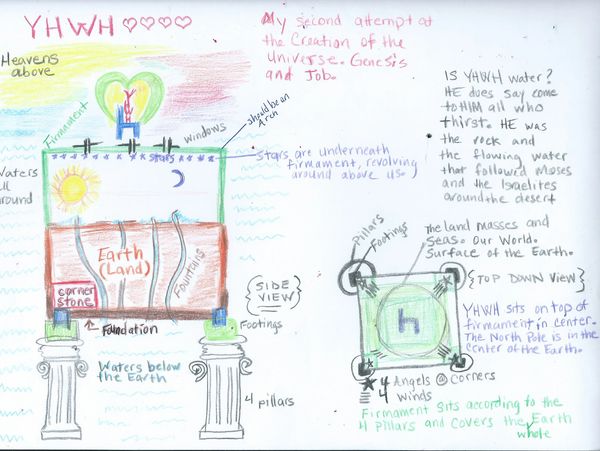 YHWH ♡♡♡♡
My second attempt at
the Creation of the
Universe. Genesis
and Job.
Heavens
above
Firmament
Windows
should be an
Arch
stars
Stars are underneath
firmament, revolving
around above us.
Waters
all
around
Earth
(Land)
Fountains
corner
stone
Foundation
{SIDE
VIEW}
Footings
Waters below
the Earth
4 pillars
Is YHWH water?
HE does say come
to HIM all who
thirst. HE was
the rock and
the flowing water
that followed Moses
and the Israelites
around the desert
Pillars
Footings
The land masses and
seas. Our World.
Surface of the Earth.
{TOP DOWN VIEW}
h
YHWH sits on top of
firmament in center.
The North Pole is in the
center of the Earth.
★ 4 Angels @ Corners
≡ 4 Winds
Firmament sits according to the
4 pillars and covers the whole Earth